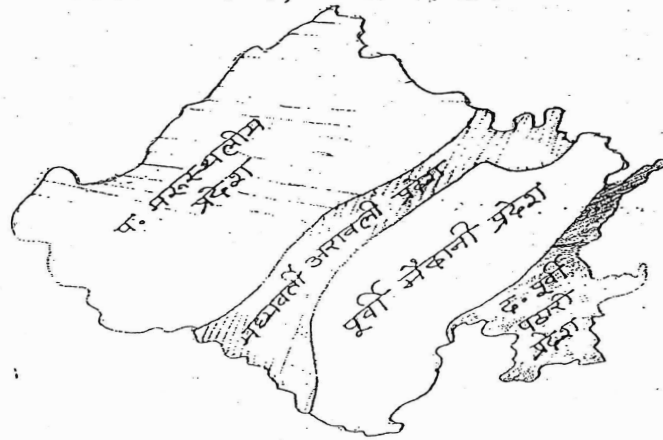 प. मरूस्थलीय
प्रदेश
मध्यवर्ती अरावली प्रदेश
पूर्वी मैदानी प्रदेश
द. पूर्वी
पठारी
प्रदेश